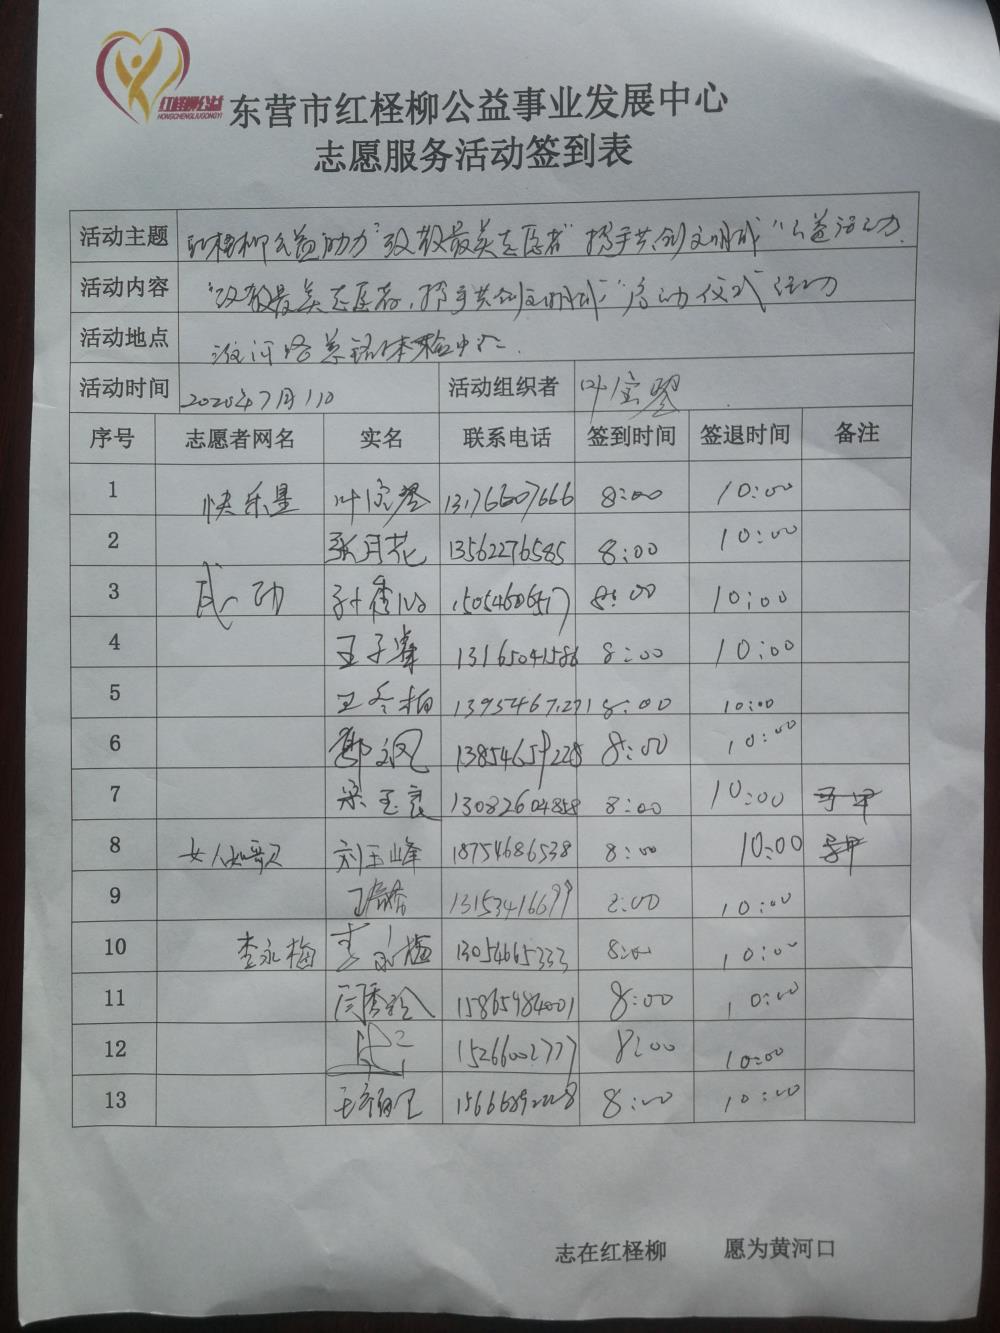 红柽柳公益
HONGCHENGLIUGONGYI
东营市红柽柳公益事业发展中心
志愿服务活动签到表
活动主题 红柽柳公益助力"致敬最美志愿者" 携手共创文明城"公益活动
活动内容 "致敬最美志愿者,携手共创文明城"启动仪式活动
活动地点 体检中心
活动时间 2020年7月11日 活动组织者 叶宝琴
序号 志愿者网名 实名 联系电话 签到时间 签退时间 备注
1 快乐星 叶宝琴 13176607666 8:00 10:00
2 张月花 13562276585 8:00 10:00
3 感动 8:00 10:00
4 王子 13165041586 8:00 10:00
5 王冬柏 13954671271 8:00 10:00
6 13854659228 8:00 10:00
7 梁玉良 13082604858 8:00 10:00
8 女人如歌 刘玉峰 18754686538 8:00 10:00
9 13153416699 8:00 10:00
10 李永梅 李永梅 13054665333 8:00 10:00
11 闫秀 15865984001 8:00 10:00
12 15266002777 8:00 10:00
13 8:00 10:00
志在红柽柳 愿为黄河口